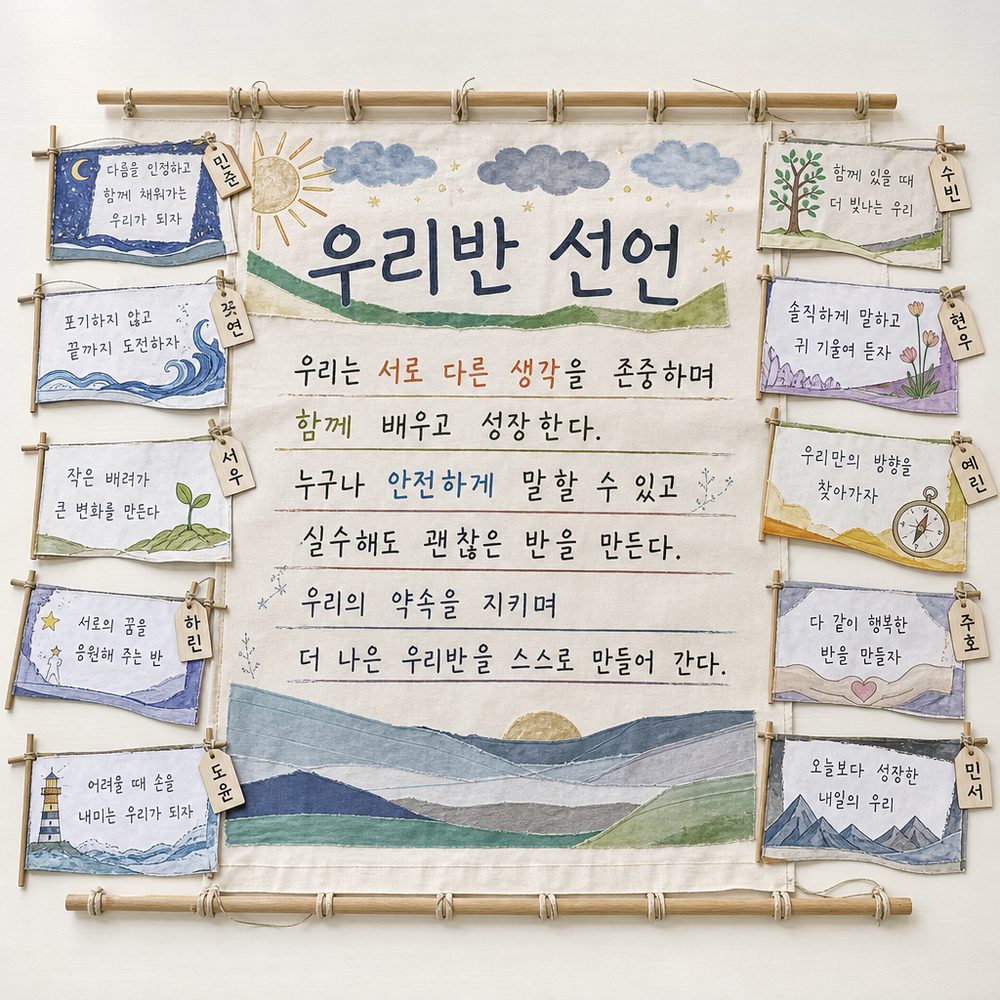 우리반 선언
우리는 서로 다른 생각을 존중하며
함께 배우고 성장한다.
누구나 안전하게 말할 수 있고
실수해도 괜찮은 반을 만든다.
우리의 약속을 지키며
더 나은 우리반을 스스로 만들어 간다.
다름을 인정하고
함께 채워가는
우리가 되자
민준
포기하지 않고
끝까지 도전하자
연
작은 배려가
큰 변화를 만든다
서우
서로의 꿈을
응원해 주는 반
하린
어려울 때 손을
내미는 우리가 되자
도윤
함께 있을 때
더 빛나는 우리
수빈
솔직하게 말하고
귀 기울여 듣자
현우
우리만의 방향을
찾아가자
예린
다 같이 행복한
반을 만들자
주호
오늘보다 성장한
내일의 우리
민서